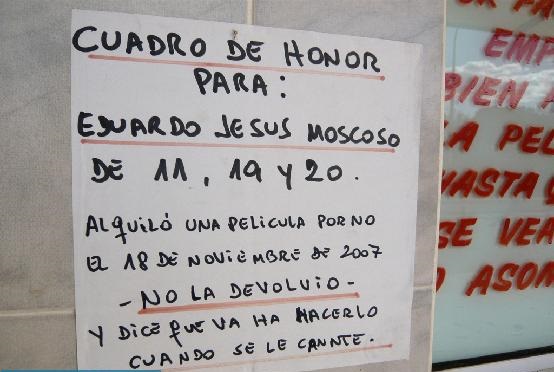 CUADRO DE HONOR
PARA:
EDUARDO JESUS MOSCOSO
DE 11, 19 Y 20.
ALQUILÓ UNA PELICULA PORNO
EL 18 DE NOVIEMBRE DE 2007
- NO LA DEVOLVIO -
Y DICE QUE VA HA HACERLO
CUANDO SE LE CANNTE.
EMP
BIEN
LA PEL
HASTA
SE VEA
ASOM